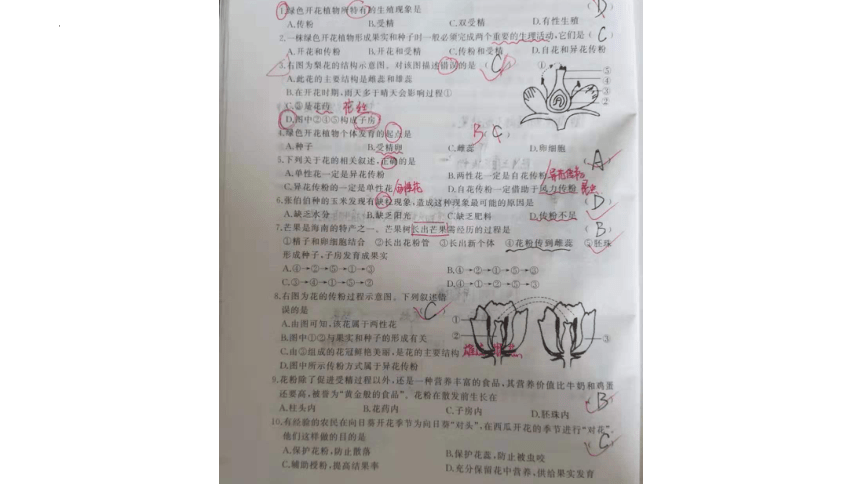 1.绿色开花植物所特有的生殖现象是 （D）
A.传粉 B.受精 C.双受精 D.有性生殖
2.一株绿色开花植物形成果实和种子时一般必须完成两个重要的生理活动,它们是（C）
A.开花和传粉 B.开花和受精 C.传粉和受精 D.自花和异花传粉
3.右图为梨花的结构示意图。对该图描述错误的是（C）
A.此花的主要结构是雌蕊和雄蕊
B.在开花时期,雨天多于晴天会影响过程①
C.③是花药 花柱
D.图中②④⑤构成子房
① ⑤ ④ ③ ②
4.绿色开花植物个体发育的起点是 B
A.种子 B.受精卵 C.雌蕊 D.卵细胞
5.下列关于花的相关叙述,正确的是 A
A.单性花一定是异花传粉 B.两性花一定是自花传粉
C.异花传粉的一定是单性花 D.自花传粉一定借助于风力传粉 昆虫
6.张伯伯种的玉米发现有缺粒现象,造成这种现象最可能的原因是 （D）
A.缺乏水分 B.缺乏阳光 C.缺乏肥料 D.传粉不足
7.芒果是海南的特产之一。芒果树长出芒果需经历的过程是 （B）
①精子和卵细胞结合 ②长出花粉管 ③长出新个体 ④花粉传到雌蕊 ⑤胚珠
形成种子,子房发育成果实
A.④→②→⑤→①→③ B.④→②→①→⑤→③
C.③→④→①→⑤→② D.④→①→②→⑤→③
8.右图为花的传粉过程示意图。下列叙述错
误的是 （C）
A.由图可知,该花属于两性花
B.图中①②与果实和种子的形成有关
C.由③组成的花冠鲜艳美丽,是花的主要结构
D.图中所示传粉方式属于异花传粉
① ② ③
9.花粉除了促进受精过程以外,还是一种营养丰富的食品,其营养价值比牛奶和鸡蛋
还要高,被誉为“黄金般的食品”。花粉在散发前生长在 B
A.柱头内 B.花药内 C.子房内 D.胚珠内
10.有经验的农民在向日葵开花季节为向日葵“对头”,在西瓜开花的季节进行“对花”,
他们这样做的目的是 （C）
A.保护花粉,防止散落 B.保护花蕊,防止被虫咬
C.辅助授粉,提高结果率 D.充分保留花中营养,供给果实发育